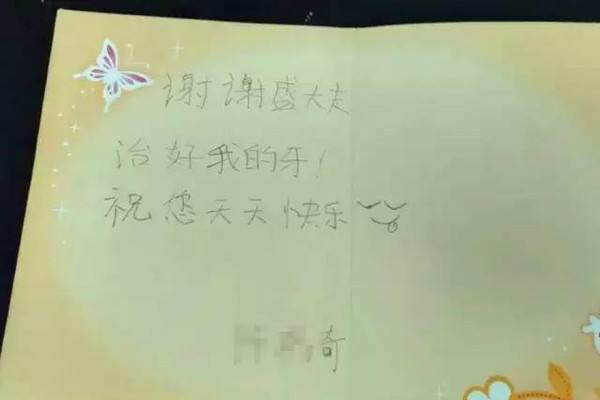 谢谢盛大夫
治好我的牙!
祝您天天快乐
奇